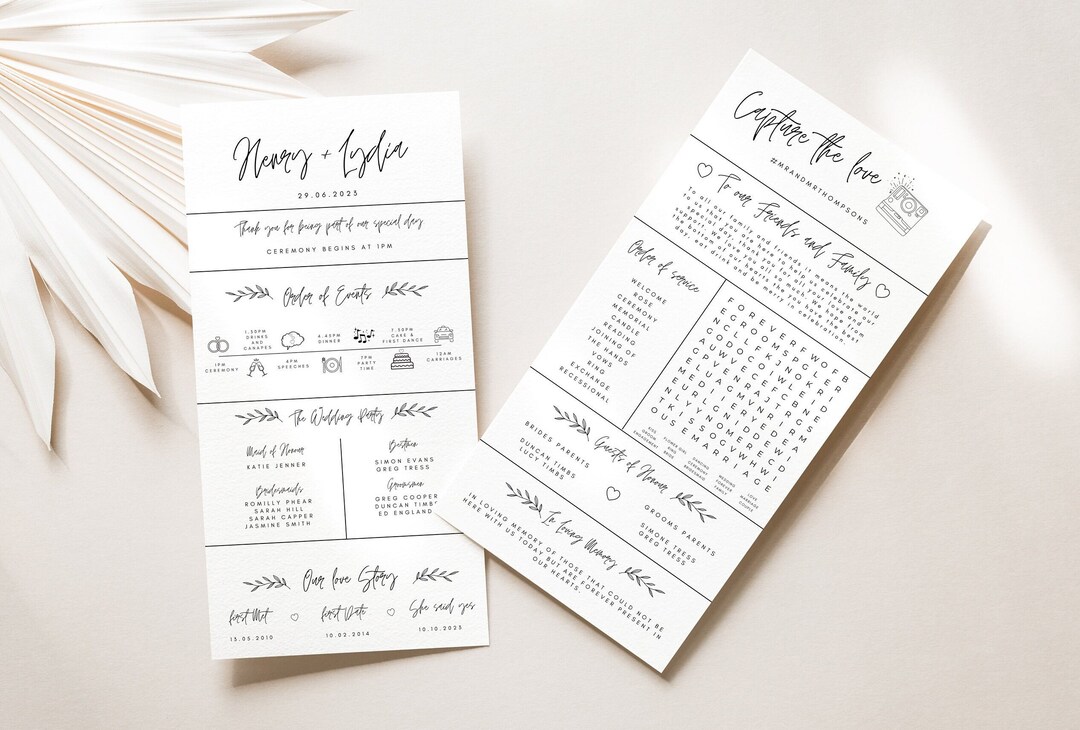 Henry + Lydia
29.06.2023
Thank you for being part of our special day
CEREMONY BEGINS AT 1PM
Order of Events
1PM
CEREMONY
1.30PM
DRINKS
AND
CANAPES
4PM
SPEECHES
4.45PM
DINNER
7PM
PARTY
TIME
7.30PM
CAKE &
FIRST DANCE
12AM
CARRIAGES
The Wedding Party
Maid of Honour
KATIE JENNER
Bridesmaids
ROMILLY PHEAR
SARAH HILL
SARAH CAPPER
JASMINE SMITH
Bestmen
SIMON EVANS
GREG TRESS
Groomsmen
GREG COOPER
DUNCAN TIMBS
ED ENGLAND
Our love Story
First Met
13.05.2010
First Date
10.02.2014
She said yes
10.10.2023
Capture the love
#MRANDMRTHOMPSONS
To our Friends and Family
To all our family and friends it means the world
to us that you are here to help us celebrate our
special day, thank you for all your love and
support. We love you all so much. We hope from the
bottom of our hearts the you have the best
day, eat drink and be merry in celebration.
Order of service
WELCOME
ROSE
CEREMONY
MEMORIAL
CANDLE
READING
JOINING OF
THE HANDS
VOWS
RING
EXCHANGE
RECESSIONAL
F O R E V E R F W O F B
KISS
GROOM
ENGAGEMENT
FLOWER GIRL
RING
BRIDE
BRIDESMAID
DANCING
CEREMONY
WEDDING
FOREVER
FAMILY
LOVE
MARRIAGE
COUPLE
Guests of Honour
BRIDES PARENTS
DUNCAN TIMBS
LUCY TIMBS
GROOMS PARENTS
SIMONE TRESS
GREG TRESS
In Loving Memory
IN LOVING MEMORY OF THOSE THAT COULD NOT BE
HERE WITH US TODAY BUT ARE FOREVER PRESENT IN
OUR HEARTS.